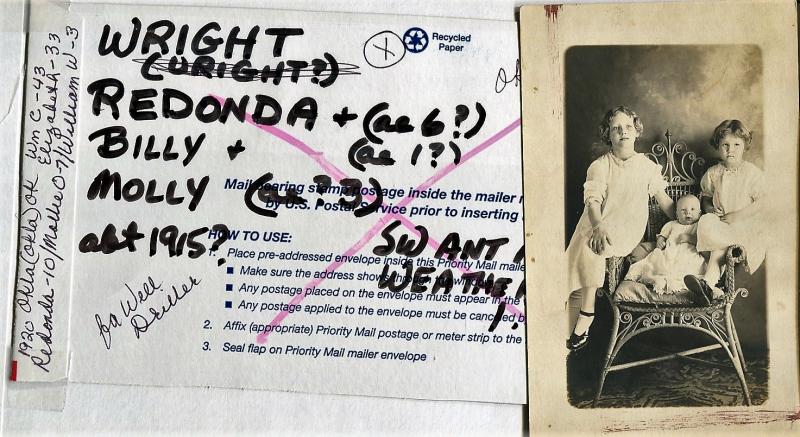 WRIGHT
(URIGHT?)
REDONDA + (ae 6?)
BILLY + (ae 1?)
MOLLY (ae 3?)
abt 1915?
X
Recycled
Paper
Mail bearing stamp postage inside the mailer
by U.S. Postal Service prior to inserting
HOW TO USE:
1. Place pre-addressed envelope inside this Priority Mail
■ Make sure the address shows through
■ Any postage placed on the envelope must appear in the
■ Any postage applied to the envelope must be canceled b
2. Affix (appropriate) Priority Mail postage or meter strip to the
3. Seal flap on Priority Mail mailer envelope
SWANT
WEATHE
Well
Driller
1920 Okla (Okla) OK Wm C-43 Elizabeth-33
Redonda-10/Mollie O-7/William W-3